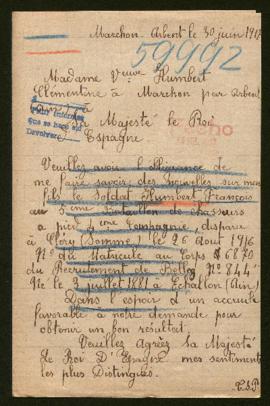 Marchon-Arbent le 30 juin 1917
59992
Madame Veuve Humbert
Clémentine à Marchon par Arbent
Majesté le Roi
Espagne
que se hace al
Devolver
Veuillez avoir l'
me faire savoir des nouvelles sur mon
fils le Soldat Humbert François
au Bataillon de chasseurs
à pied 4ième Compagnie, disparu
à (Somme) le 26 Aout 1916
No du Matricule au Corps 6870
du Recrutement de No 844
Né le 3 juillet 1881 à Echallon (Ain)
Dans l'espoir d'un accueil
favorable à notre demande pour
obtenir un bon résultat,
Veuillez Agréez Sa Majesté
Le Roi D'Espagne mes sentiments
les plus Distingués.